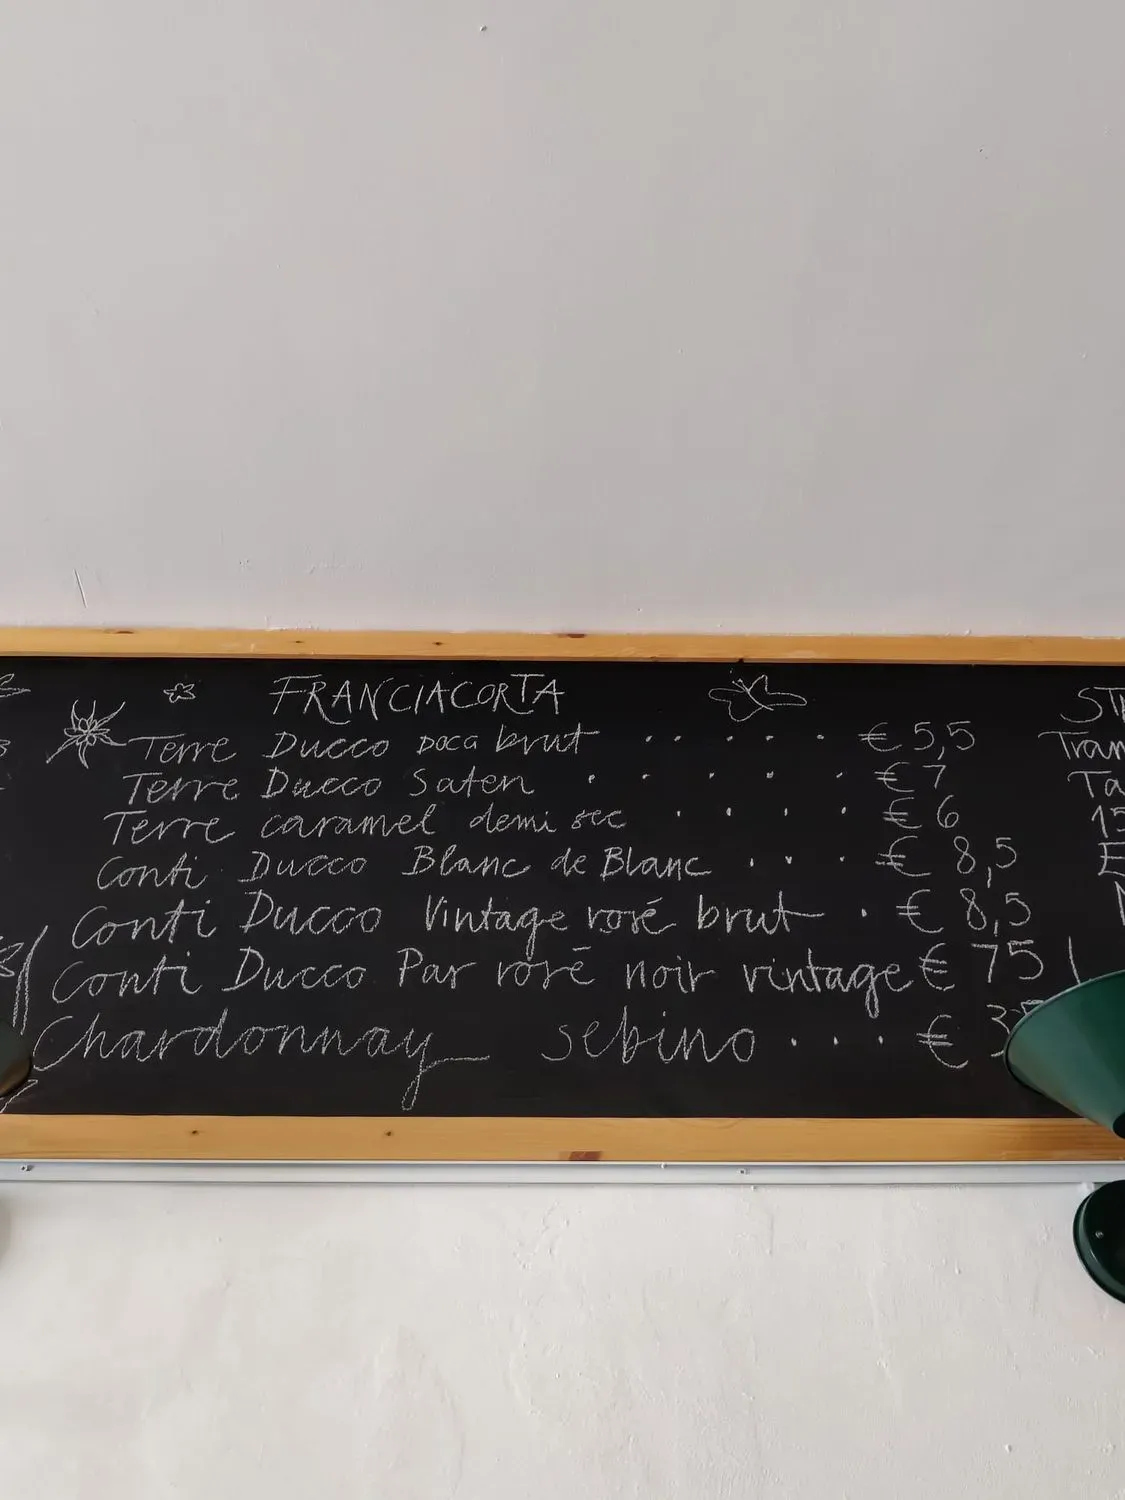 FRANCIACORTA
Terre Ducco DOCG brut . . . . . € 5,5
Terre Ducco Saten . . . . . € 7
Terre caramel demi sec . . . . € 6
Conti Ducco Blanc de Blanc . . . € 8,5
Conti Ducco Vintage rosé brut . € 8,5
Conti Ducco Par rosé noir vintage € 75
Chardonnay sebino . . . . €
Tram
Ta